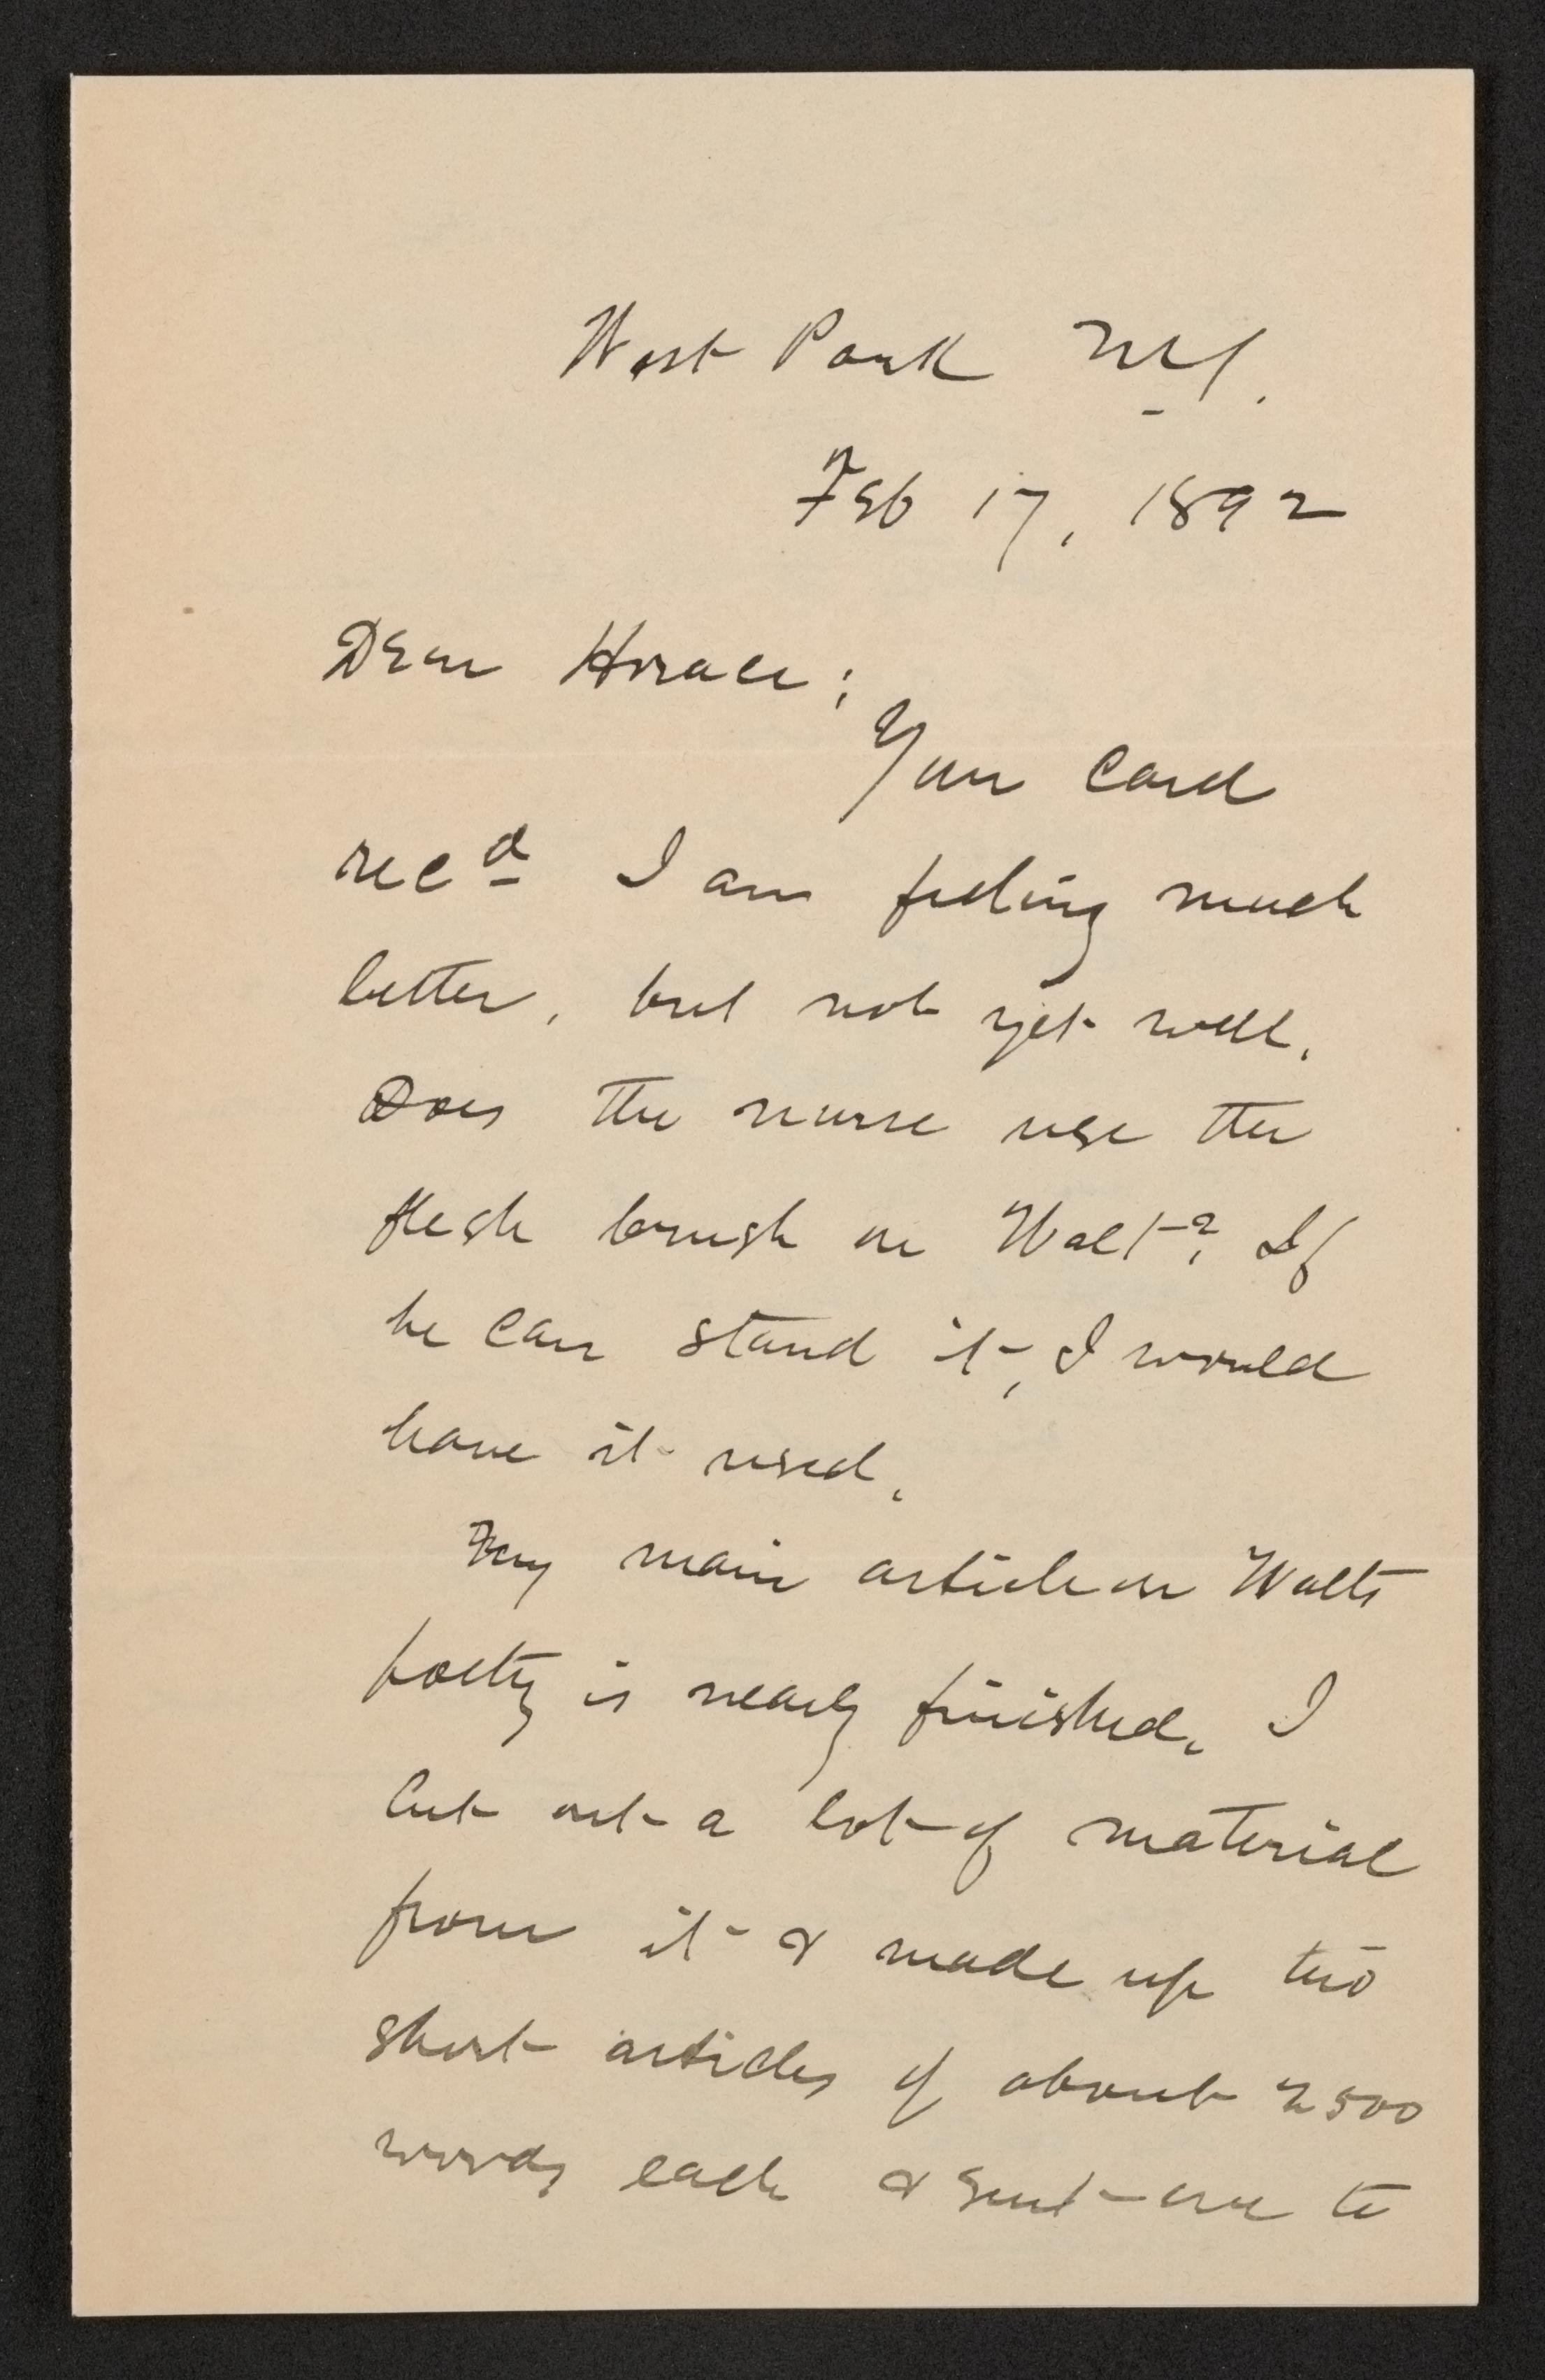 West Park N.Y.
Feb 17, 1892
Dear Horace;
Your card
recd I am feeling much
better, but not yet well.
Does the nurse use the
flesh brush on Walt? If
he can stand it, I would
have it used.
My main article on Walts
poetry is nearly finished. I
cut out a lot of material
from it & made up two
short articles of about 2500
words each & sent one to